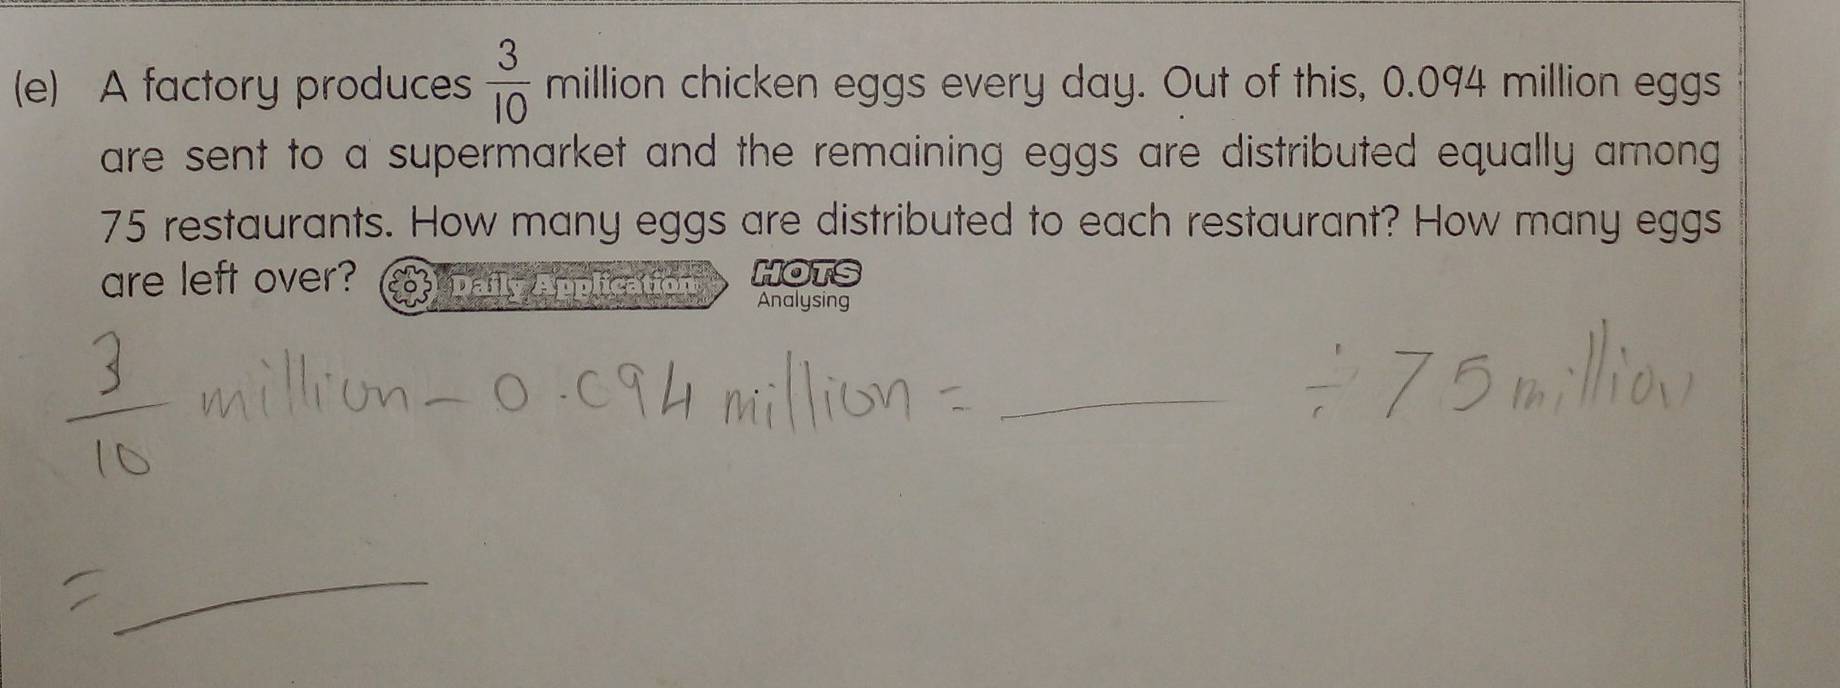 (e) A factory produces 3/10 million chicken eggs every day. Out of this, 0.094 million eggs
are sent to a supermarket and the remaining eggs are distributed equally among
75 restaurants. How many eggs are distributed to each restaurant? How many eggs
are left over? Daily Application HOTS
Analysing
3/10 million - 0.094 million = ____ ÷ 75 million
= ____